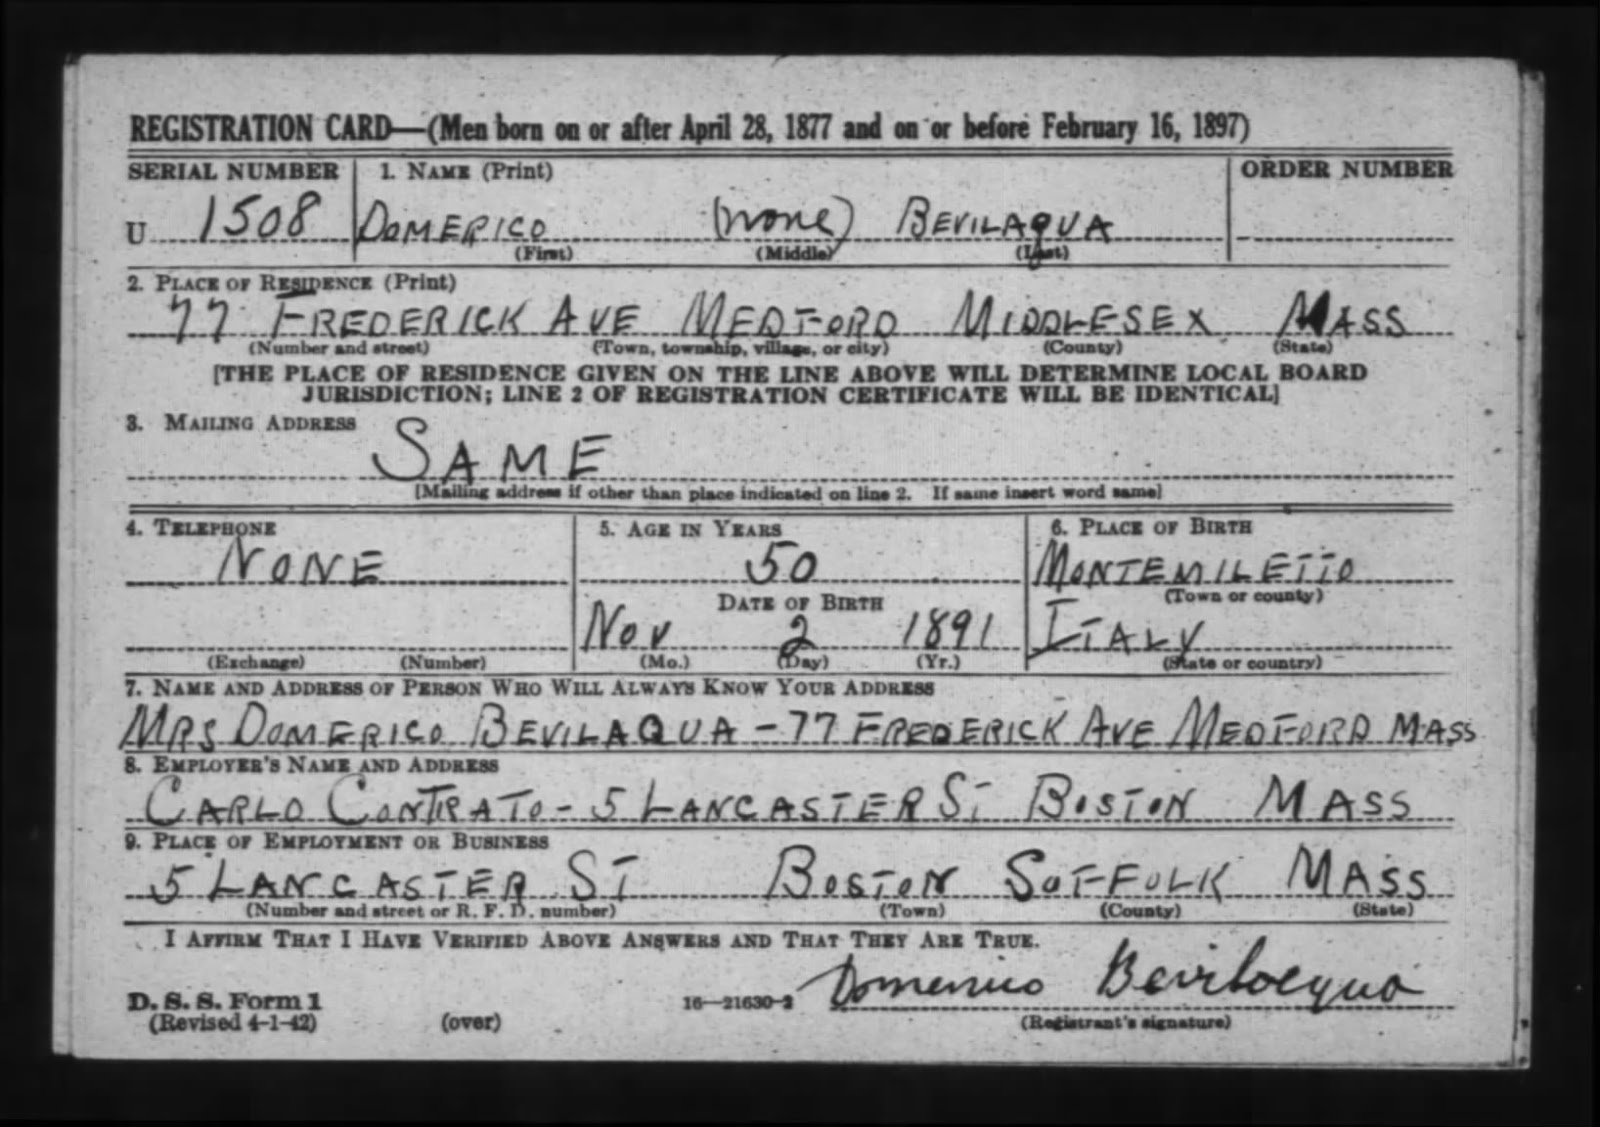 REGISTRATION CARD—(Men born on or after April 28, 1877 and on or before February 16, 1897)
SERIAL NUMBER 1. NAME (Print) ORDER NUMBER
U 1508 DOMERICO (none) BEVILAQUA
(First) (Middle) (Last)
2. PLACE OF RESIDENCE (Print)
77 FREDERICK AVE MEDFORD MIDDLESEX MASS
(Number and street) (Town, township, village, or city) (County) (State)
[THE PLACE OF RESIDENCE GIVEN ON THE LINE ABOVE WILL DETERMINE LOCAL BOARD
JURISDICTION; LINE 2 OF REGISTRATION CERTIFICATE WILL BE IDENTICAL]
3. MAILING ADDRESS
SAME
[Mailing address if other than place indicated on line 2. If same insert word same]
4. TELEPHONE 5. AGE IN YEARS 6. PLACE OF BIRTH
NONE 50 MONTEMILETTO
DATE OF BIRTH (Town or county)
Nov 2 1891 ITALY
(Exchange) (Number) (Mo.) (Day) (Yr.) (State or country)
7. NAME AND ADDRESS OF PERSON WHO WILL ALWAYS KNOW YOUR ADDRESS
MRS DOMERICO BEVILAQUA - 77 FREDERICK AVE MEDFORD MASS
8. EMPLOYER'S NAME AND ADDRESS
CARLO CONTRATO - 5 LANCASTER ST BOSTON MASS
9. PLACE OF EMPLOYMENT OR BUSINESS
5 LANCASTER ST BOSTON SUFFOLK MASS
(Number and street or R. F. D. number) (Town) (County) (State)
I AFFIRM THAT I HAVE VERIFIED ABOVE ANSWERS AND THAT THEY ARE TRUE.
D. S. S. Form 1 16—21630-2 Domenico Bevilacqua
(Revised 4-1-42) (over) (Registrant's signature)